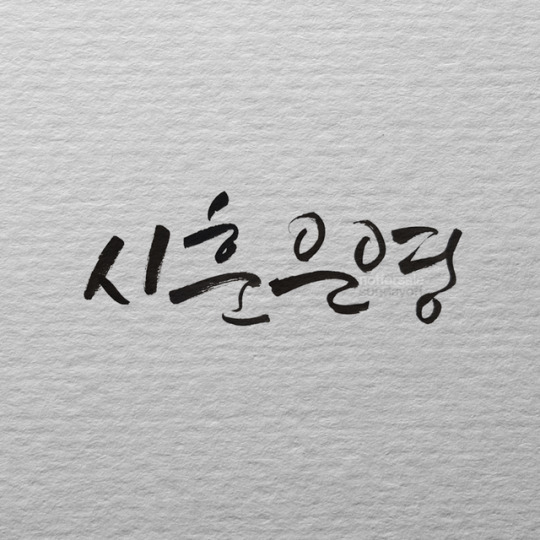 시훈은영